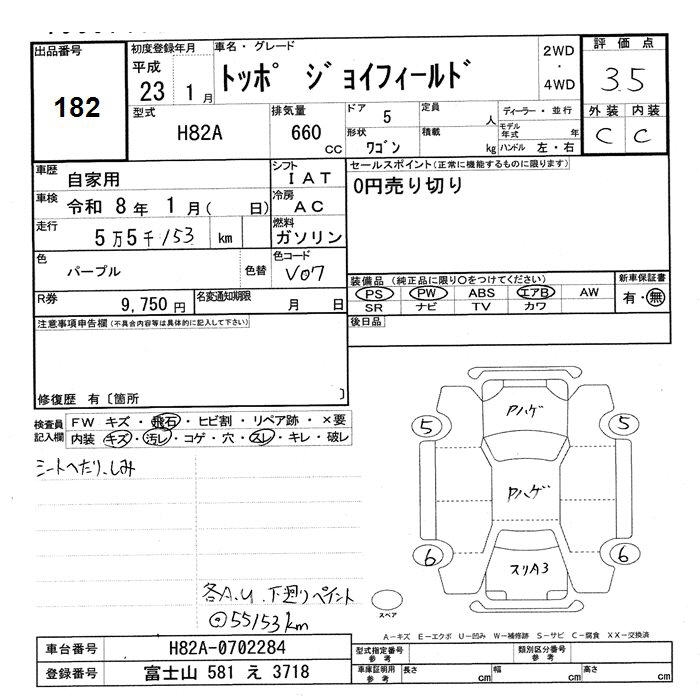 出品番号
182
初度登録年月
平成
23 1月
車名・グレード
トッポ ジョイフィールド
2WD
・
4WD
評価点
3.5
外装 内装
C C
型式
H82A
排気量
660
cc
ドア
5
形状
ワゴン
定員
人
積載
kg
ディーラー・並行
モデル
年式
年
ハンドル 左・右
車歴
自家用
シフト
IAT
車検
令和 8年 1月( 日)
冷房
AC
走行
5万5千153
km
燃料
ガソリン
色
パープル
色替
色コード
V07
R券
9,750 円
名変通知期限
月 日
セールスポイント(正常に機能するものに限ります)
0円売り切り
装備品(純正品に限り○をつけてください)
PS PW ABS エアB AW
SR ナビ TV カワ
新車保証書
有・無
後日品
注意事項申告欄(不具合内容等は具体的に記入して下さい)
修復歴 有〔箇所 〕
検査員
記入欄
FW キズ・飛石・ヒビ割・リペア跡・×要
内装 キズ・汚レ・コゲ・穴・スレ・キレ・破レ
シートへたり、しみ
各A.U.下廻りペイント
◎55153km
Pハゲ
5 5
Pハゲ
6 6
スリA3
スペア
A-キズ E-エクボ U-凹み W-補修跡 S-サビ C-腐食 XX-交換済
車台番号
H82A-0702284
登録番号
富士山 581 え 3718
型式指定番号
参考
類別区分番号
参考
車庫証明用
参考
長さ cm
幅 cm
高さ cm